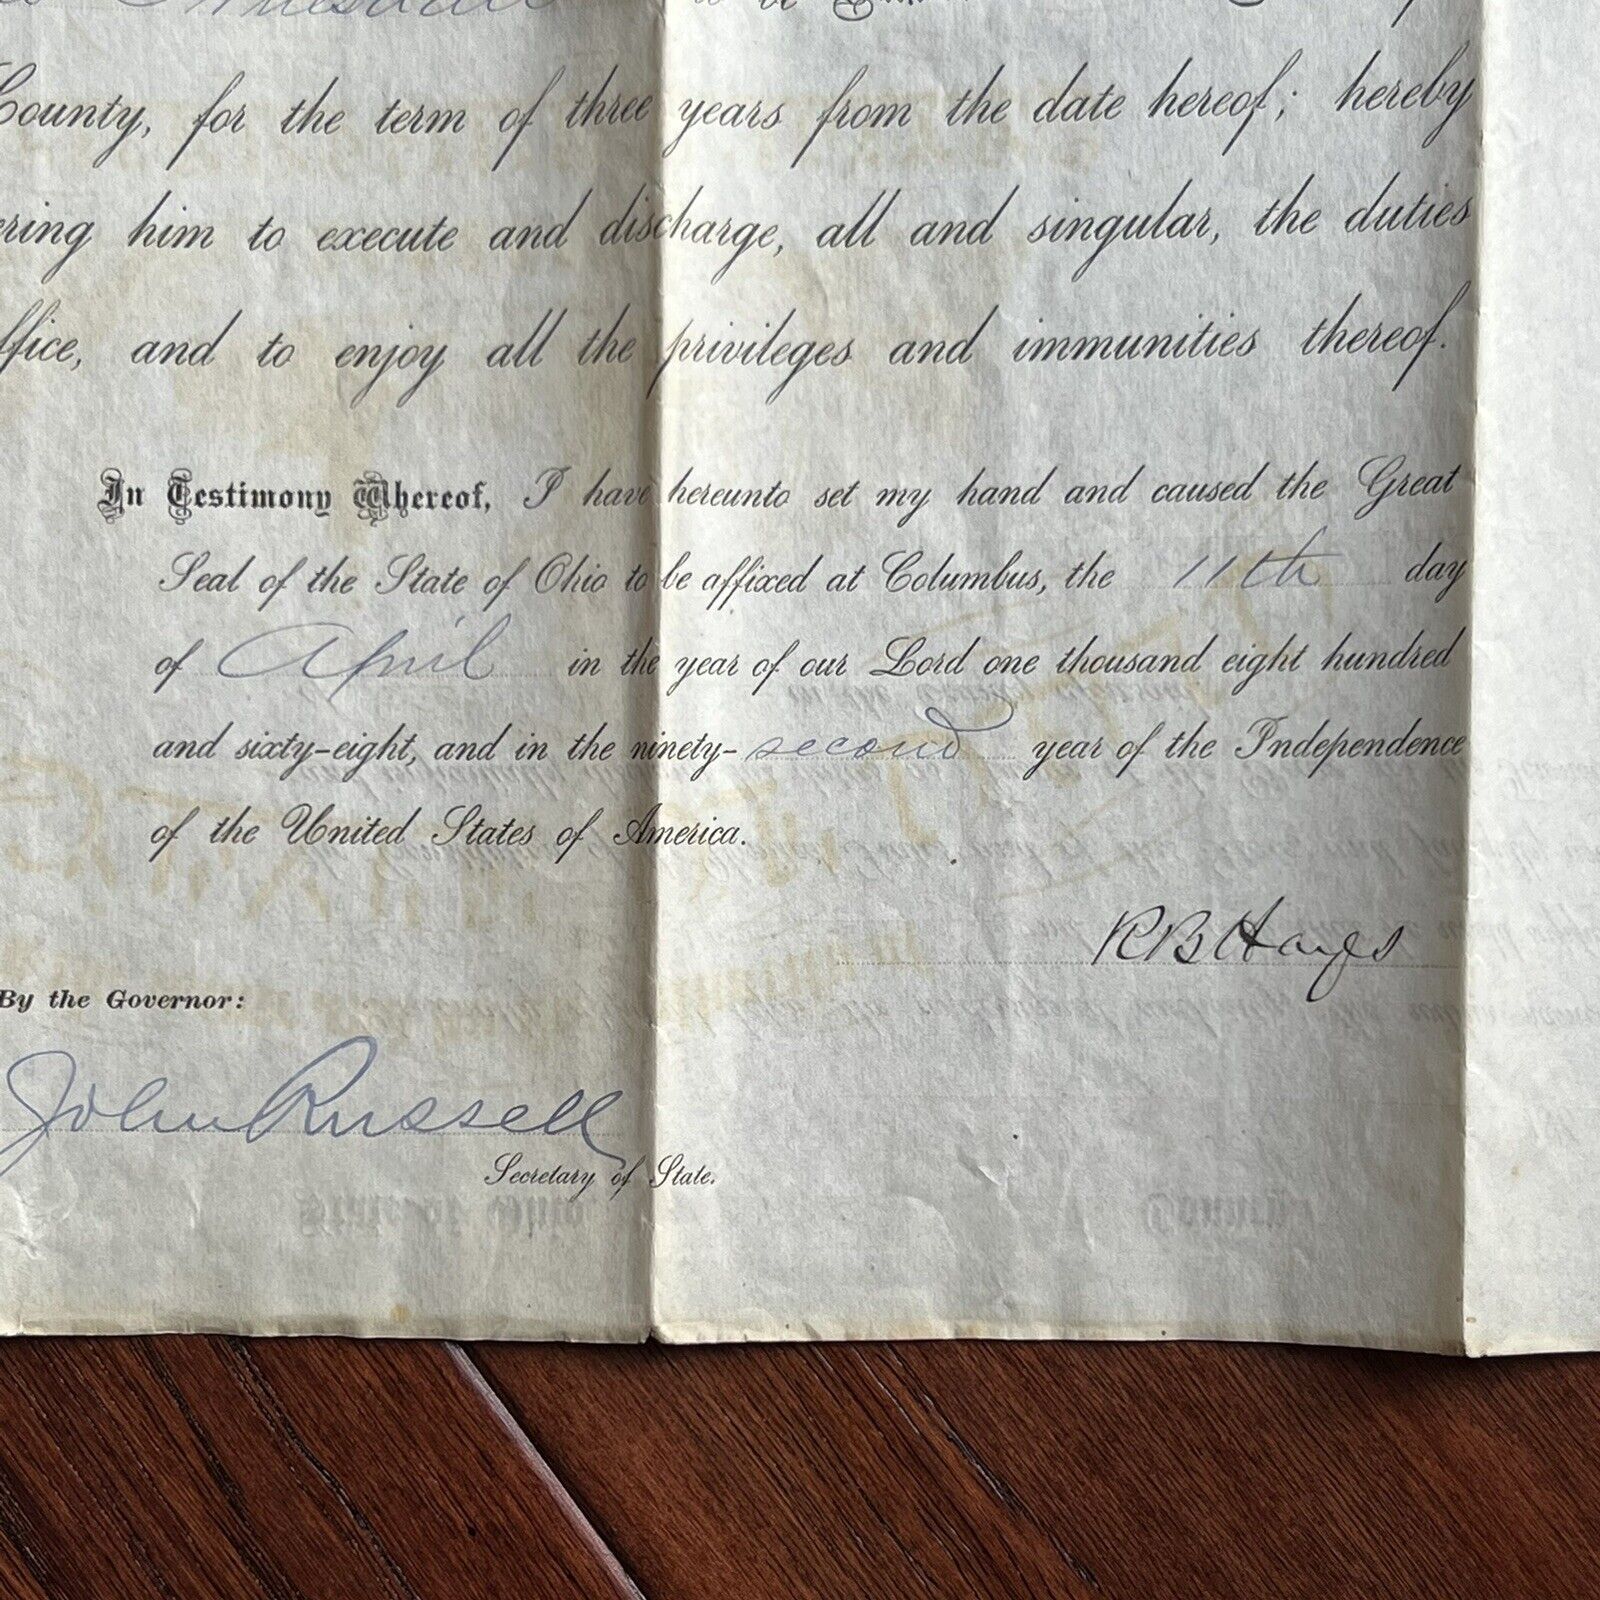 to be
County, for the term of three years from the date hereof; hereby
ering him to execute and discharge, all and singular, the duties
ffice, and to enjoy all the privileges and immunities thereof.
In Testimony Whereof, I have hereunto set my hand and caused the Great
Seal of the State of Ohio to be affixed at Columbus, the 11th day
of April in the year of our Lord one thousand eight hundred
and sixty-eight, and in the ninety-second year of the Independence
of the United States of America.
RB Hayes
By the Governor:
John Russell
Secretary of State.